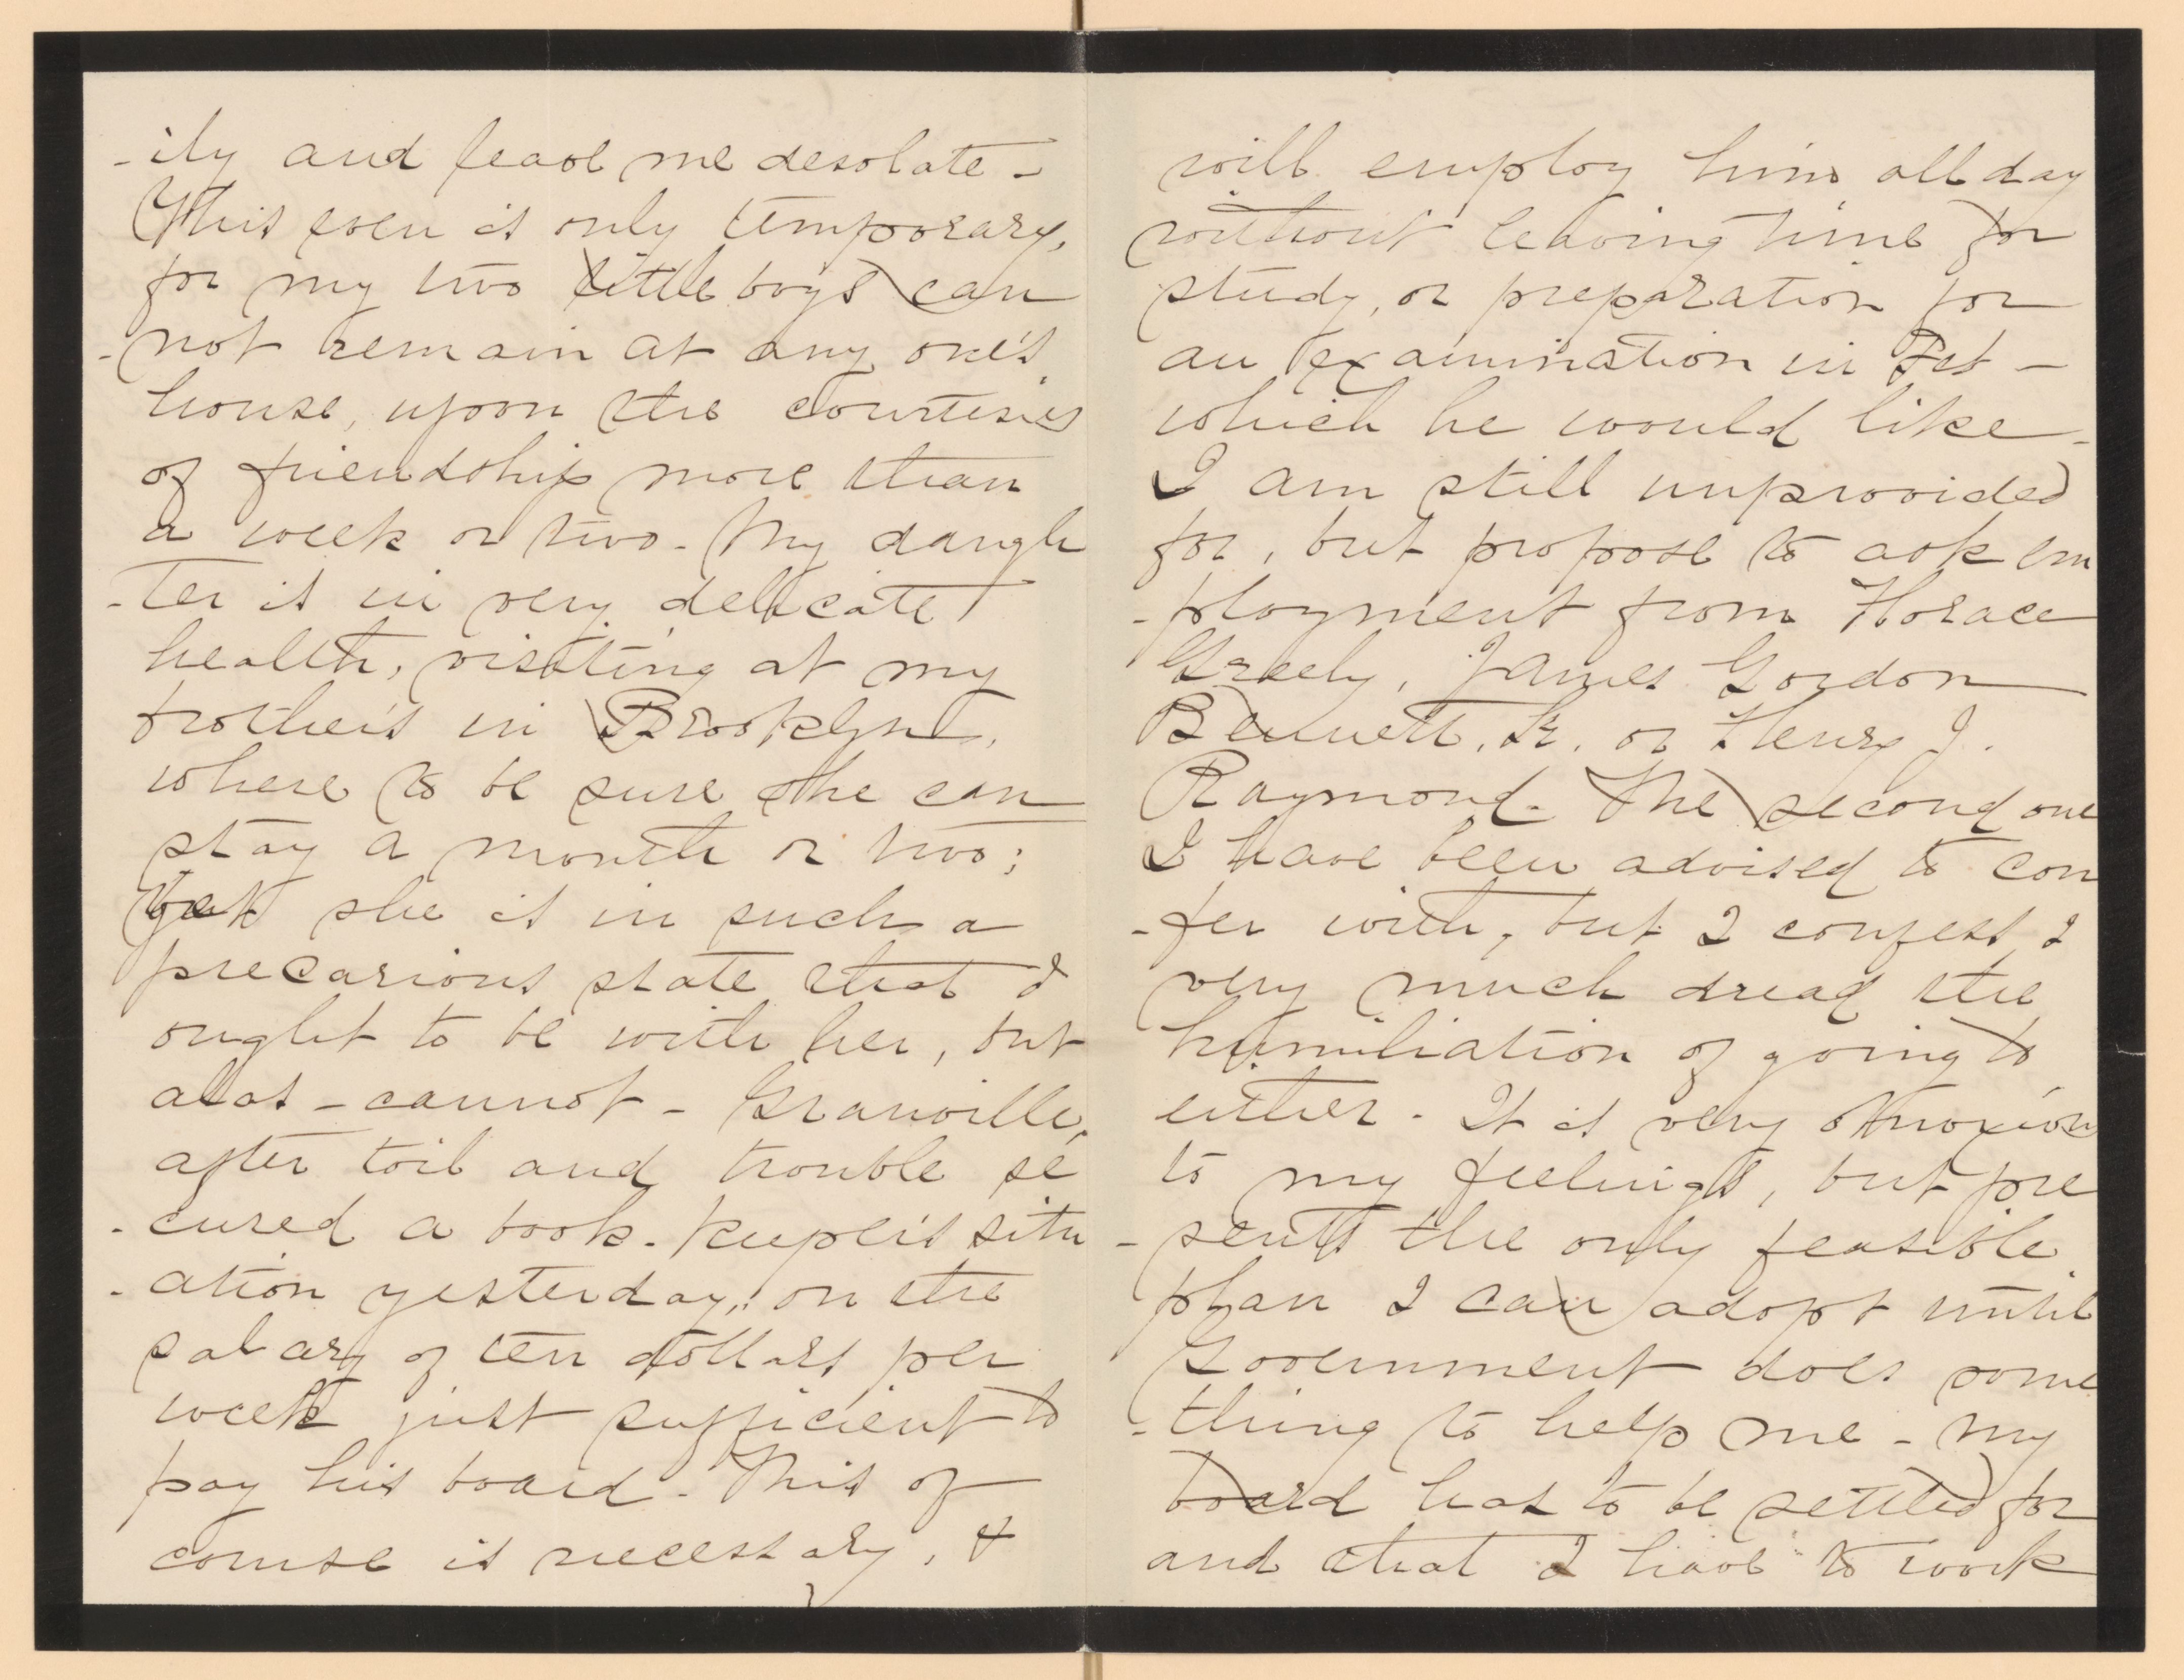 -ily and leave me desolate -
This even is only temporary,
for my two little boys can
-not remain at any one's
house, upon the courtesies
of friendship more than
a week or two - My daugh
-ter is in very delicate
health, visiting at my
brother's in Brooklyn,
where to be sure she can
stay a month or two;
yet she is in such a
precarious state that I
ought to be with her, but
alas - cannot - Granville,
after toil and trouble se
-cured a book-keeper's situ
-ation yesterday, on the
salary of ten dollars per
week just sufficient to
pay his board - This of
course is necessary, &
will employ him all day
without leaving time for
study, or preparation for
an examination in Feb -
which he would like -
I am still unprovided
for, but propose to ask em
-ployment from Horace
Greely, James Gordon
Bennett, Jr. or Henry J.
Raymond - The second one
I have been advised to con
-fer with, but I confess I
very much dread the
humiliation of going to
either - It is very obnoxious
to my feelings, but pre
-sents the only feasible
plan I can adopt until
Government does some
-thing to help me - my
board has to be settled for
and that I have to work